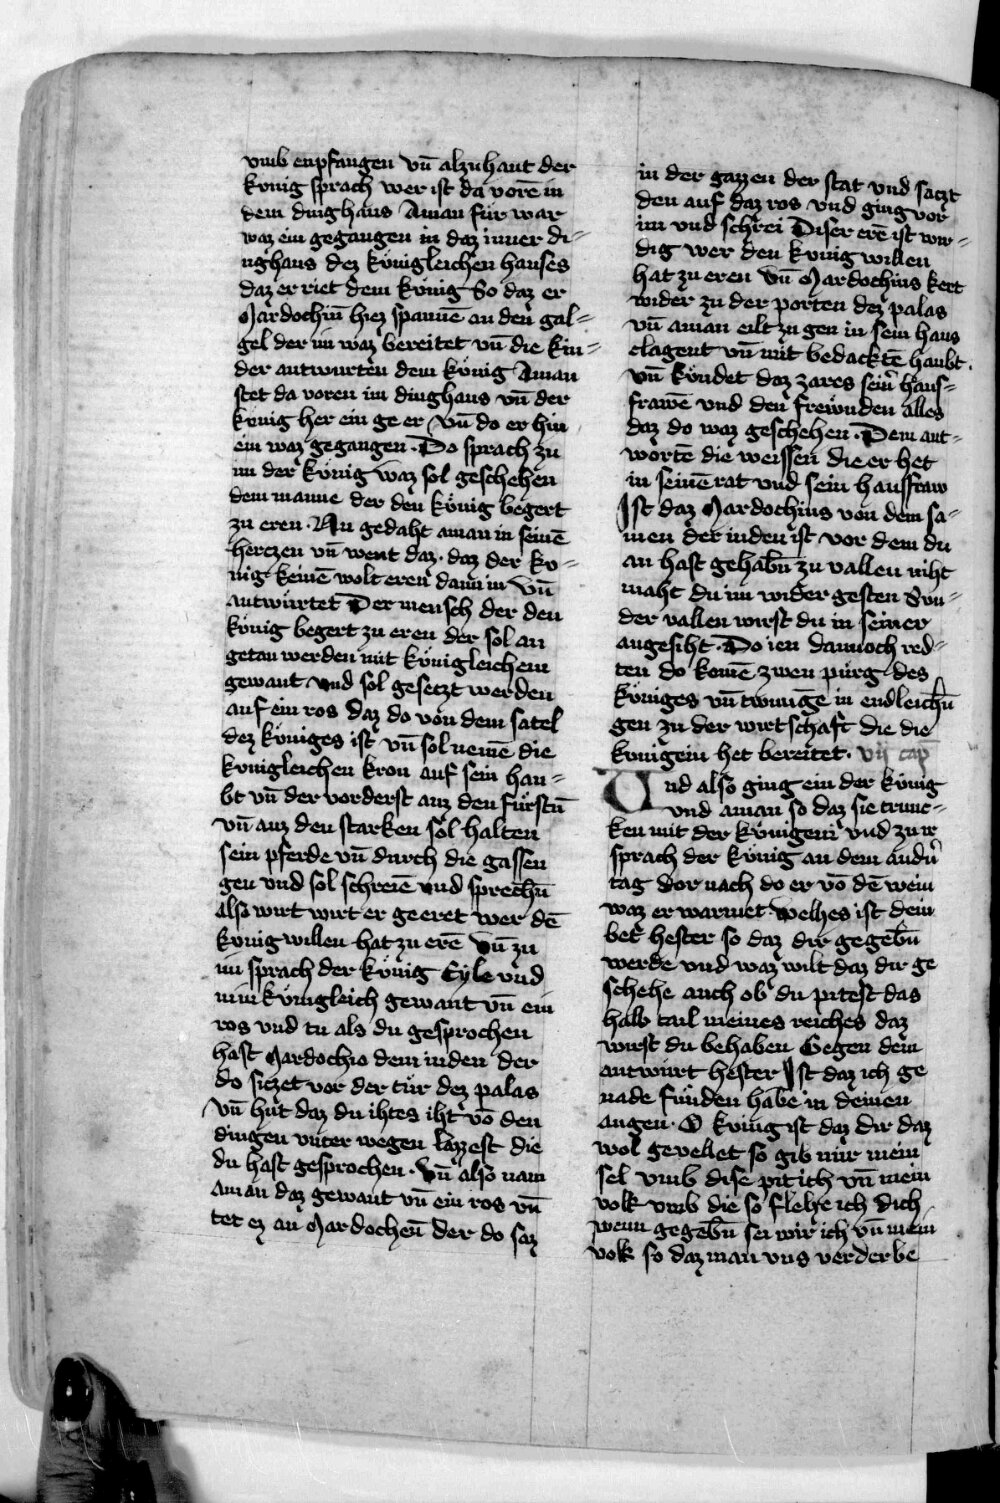 vmb enpfangen vn̄ alzuhant der
kunig sprach wer ist da vorē in
dem dinghaus Aman für war
waz ein gegangen in daz inner di=
nghaus dez königleichen hauses
daz er riet dem kunig So daz er
Mardochin̄ hiez spannē an den gal=
gel der im waz bereitet vn̄ die kin=
der antwurten dem kunig Aman
stet da voren im dinghaus vn̄ der
kunig her ein ge er vn̄ do er hin
ein waz gegangen · Do sprach zu
im der kunig waz sol geschehen
dem manne der den kunig begert
zu eren · Nu gedaht aman in seinē
herczen vn̄ went daz · daz der ku=
nig keinē wolt eren dann in vn̄
antwürtet Der mensch der den
kunig begert zu eren der sol an
getan werden mit kunigleichem
gewant vnd sol gesetzt werden
auf ein ros daz do von dem satel
dez küniges ist vn̄ sol nemē die
kunigleichen kron auf sein hau=
bt vn̄ der vorderst auz den fürstn̄
vn̄ auz den starken sol halten
sein pferde vn̄ durch die gassen
gen vnd sol schreiē vnd sprechn̄
also wirt wirt er geeret wer dē
kunig willen hat zu erē vn̄ zu
im sprach der kunig Eyle vnd
nim kunigleich gewant vn̄ ein
ros vnd tu als du gesprochen
hast Mardochio dem iuden der
do siczet vor der tür dez palas
vn̄ hüt daz du ihtes iht vō den
dingen vnter wegen lazzest die
du hast gesprochen · vn̄ also nam
aman daz gewant vn̄ ein ros vn̄
tet ez an Mardochen̄ der do saz
in der gazzen der stat vnd saczt
den auf daz ros vnd ging vor
im vnd schrei Diser erē ist wir=
dig wer den kunig willen
hat zu eren vn̄ Mardochius kert
wider zu der porten dez palas
vn̄ aman eilt zu gen in sein haus
clagent vn̄ mit bedacktē haubt ·
vn̄ kundet daz zares sein̄ haus=
frawē vnd den frewnden alles
daz do waz geschehen · Dem ant=
wortē die weissen die er het
in seinē rat vnd sein hausfraw
Ist daz Mardochius von dem sa=
men der iuden ist vor dem du
an hast gehabn̄ zu vallen niht
maht du im wider gesten Sun=
der vallen wirst du in seiner
angesiht · Do ien dannoch red=
ten do komē zwen pürg des
küniges vn̄ twungē in endleichn̄
gen zu der wirtschaft die die
kunigein het bereitet · vij cap
Vnd also ging ein der kunig
vnd aman so daz sie trunc=
ken mit der kunigein vnd zu ir
sprach der kunig an dem andn̄
tag dor nach do er vō dē wein
waz er warmet · welhes ist dein
bet hester so daz dir gegebn̄
werde vnd waz wilt daz dir ge
schehe auch ob du pitest das
halb tail meines reiches daz
wirst du behaben Gegen dem
antwurt hester Ist daz ich ge
nade funden habe in deinen
augen · O kunig ist daz dir daz
wol gevellet so gib mir mein
sel vmb dise pit ich vn̄ mein
volk vmb die so flehe ich dich
wenn gegebn̄ sei wir ich vn̄ mein
volk so daz man vns verderbe